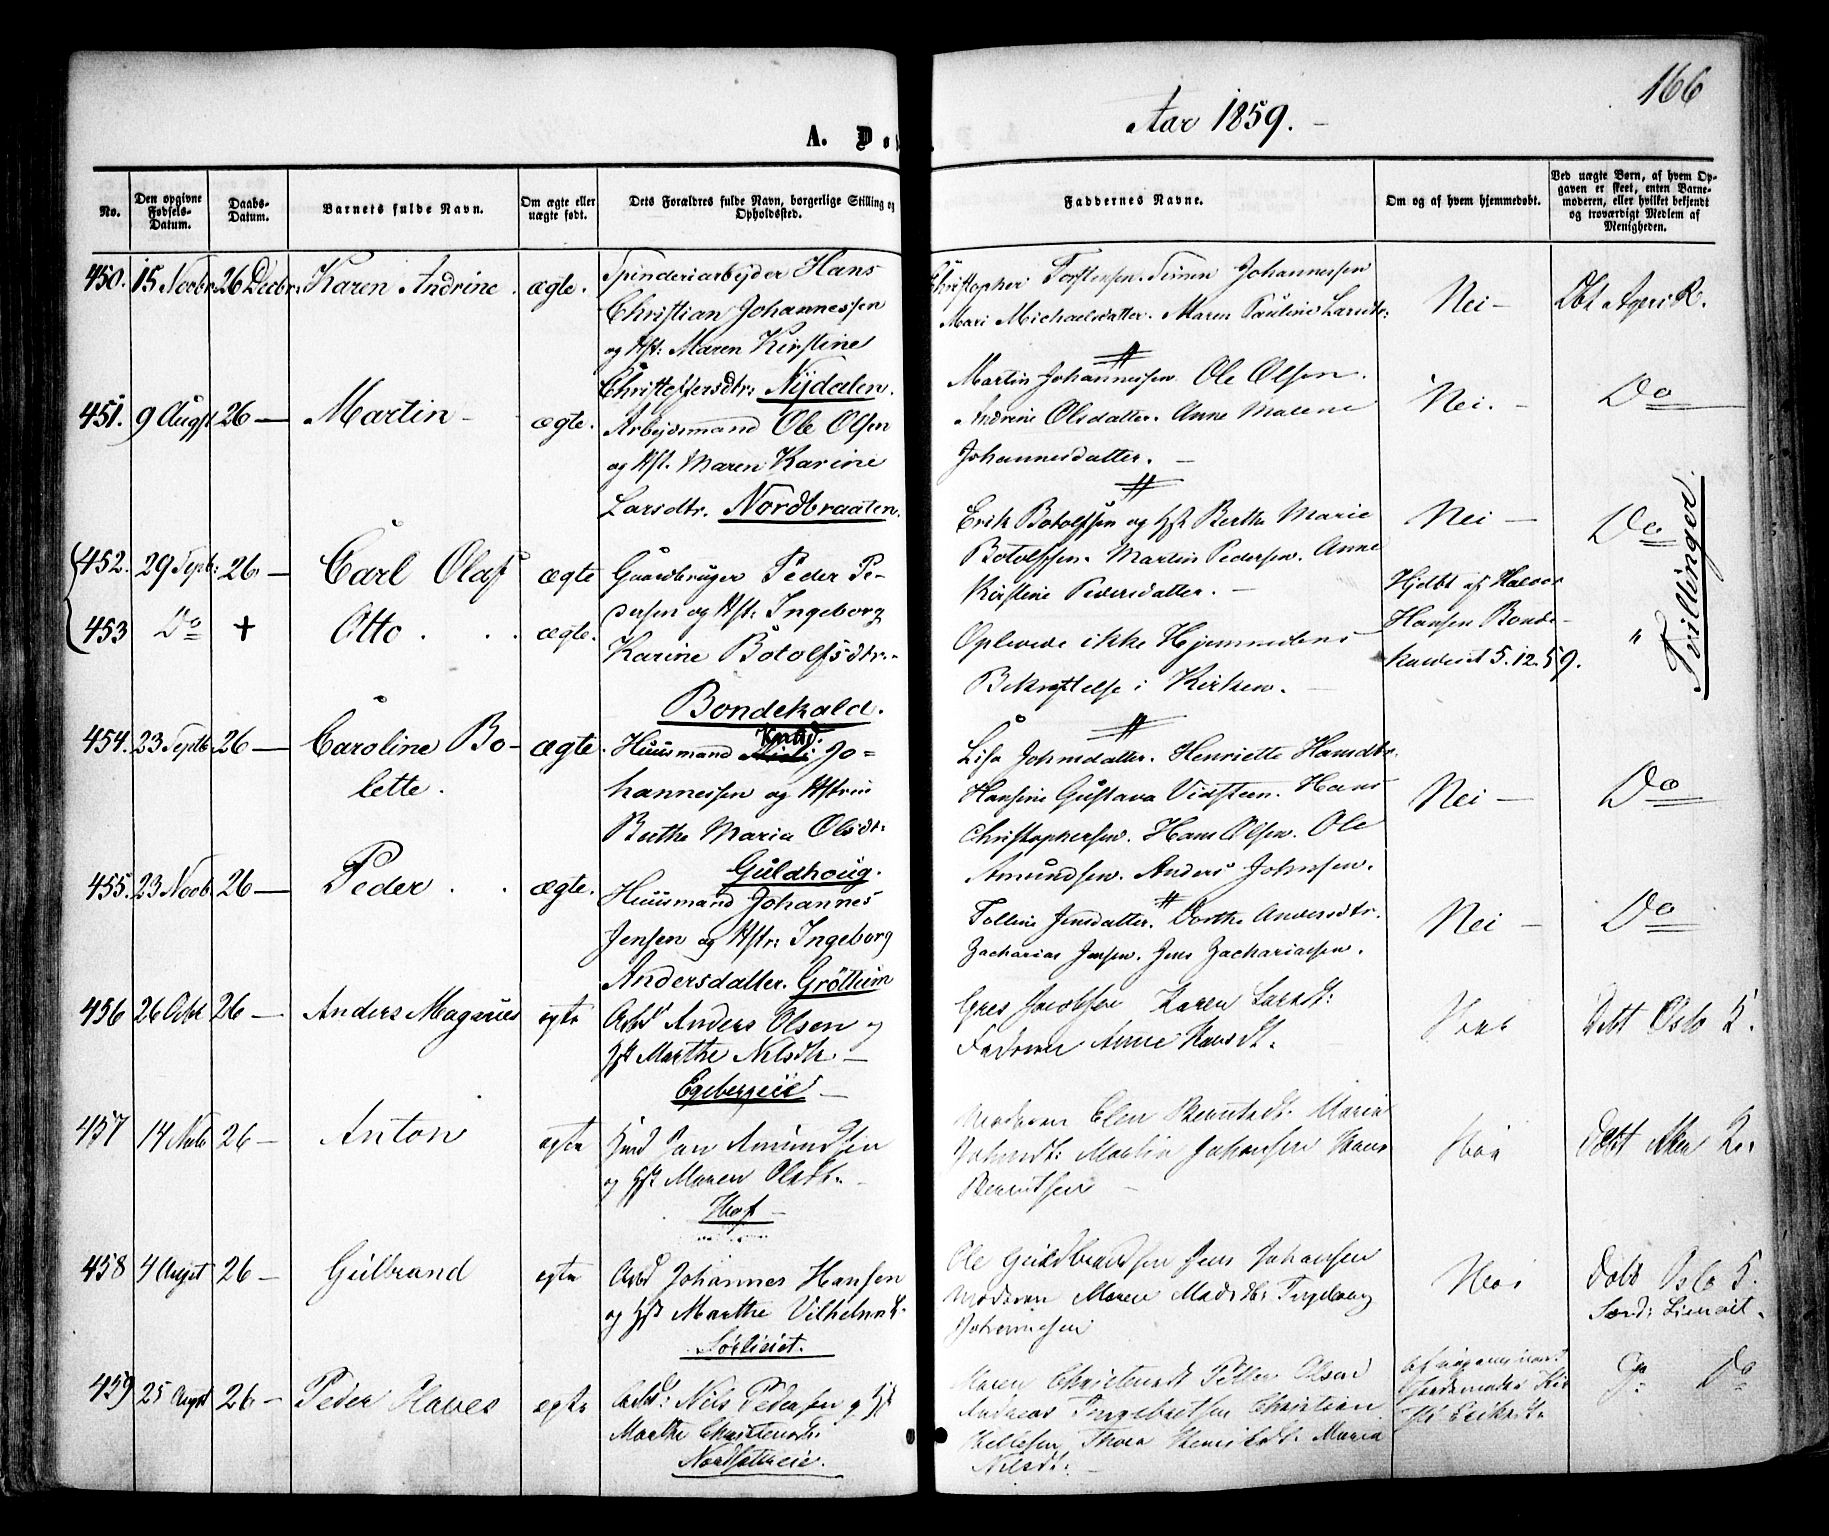 166
Aar 1859. -
A. Do
No.
Den opgivne Fødsels-Datum.
Daabs-Datum.
Barnets fulde Navn.
Om ægte eller uægte født.
Dets Forældres fulde Navn, borgerlige Stilling og Opholdssted.
Faddernes Navne.
Om og af hvem hjemmedøbt.
Ved uægte Børn, af hvem Opgaven er skeet, enten Barnemoderen, eller hvilket bekjendt og troværdigt Medlem af Menigheden.
450. 15 Novbr. 26 Decbr. Karen Andrine. ægte.
Spinderiarbejder Hans
Christian Johannessen
og Hst: Maren Kirstine
Christoffersdtr: Nijdalen.
Christopher Torstensen. Simen Johannessen
Mari Michaelsdatter. Maren Pauline Larsdtr:
Nei -
Dbt Ageri K.
451. 9 Augst 26 — Martin - ægte.
Arbejdsmand Ole Olsen
og Hst. Maren Karine
Larsdtr. Nordbraaten.
Martin Johannessen. Ole Olsen.
Andrine Olsdatter. Anne Malene
Johannesdatter. -
Nei. -
Do
452. 29 Septb: 26 — Carl Olaf ægte
453 Do + Otto . . . ægte.
Gaardbruger Peder Pe-
dersen og Hst: Ingeborg
Karine Botolfsdtr:-
Bondekald.
Erik Botolfsen og Hst Berthe Marie
Botolfsen. Martin Pedersen. Anne
Kirstine Pedersdatter. -
Oplevede ikke Hjemmedaabens
Bekræftelse i Kirken. -
Nei -
Hjdbt af Halvor
Hansen Bonde-
kaldeiet 5.12.59.
Do
"
Tvillinger.
454. 23 Septb. 26 — Caroline Bo-
lette.
ægte.
Huusmand Knud. Jo-
hannessen og Hstru
Berthe Maria Olsdtr:
Guldhoug.
Lisa Johnsdatter. Henriette Hansdtr.
Hansine Gustava Vidsteen. Hans
Christophersen. Hans Olsen. Ole
Amundsen. Anders Johnsen.
Nei -
Do
455. 23 Novb. 26 — Peder . . ægte.
Huusmand Johannes
Jensen og Hstr: Ingeborg
Andersdatter. Grøttum
Tolline Jensdatter. Dorthe Andersdtr.
Zacharias Jensen. Jens Zachariassen.
Nei -
Do
456 26 Octbr 26 — Anders Magnus ægte
Arbd Anders Olsen og
Hst Marthe Nilsdtr. -
Egebergeie -
Jacobsen Karen Larsdt:
Faderen Anne Hansdt.
Nei
Debt Oslo K.
457 14 Novb 26 — Anton ægte
Jan Amundsen
og Hst Maren Olsdt. -
Hof -
Moderen Elen Berntsdt. Maria
Johnsdt: Martin Johansen Hans
Berntsen -
Nei
Debt Aker K.
458 4 Augst 26 - Gulbrand ægte
Arbd Johannes Hansen
og Hst Marthe Vilhelmsdt.
Sørlieiet.
Ole Guldbrandsen Jens Johansen
Moderen Maren Madsdt: Ingeborg
Johannesen
Nei
Dobt Oslo K.
459 25 Augst 26 - Peder Claves ægte
Arbd: Nils Pedersen og Hst
Marthe Christensdt:
Nordsetereie.
Maren Christensdt Petter Olsen
Andreas Ingebretsen Christian
Thora Henriksdt. Maria
Nilsdt: -
Do